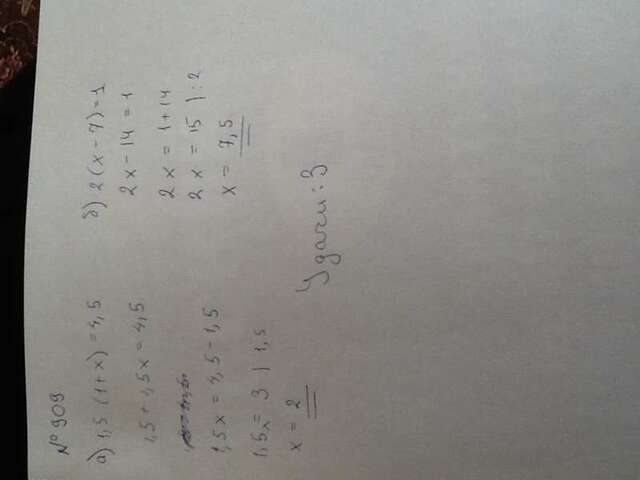 № 909
а) 1,5 (1+x) = 4,5
1,5 + 1,5x = 4,5
1,5x = 4,5 - 1,5
1,5x = 3 | 1,5
x = 2
б) 2(x - 7) = 1
2x - 14 = 1
2x = 1 + 14
2x = 15 | : 2
x = 7,5
Удачи :3